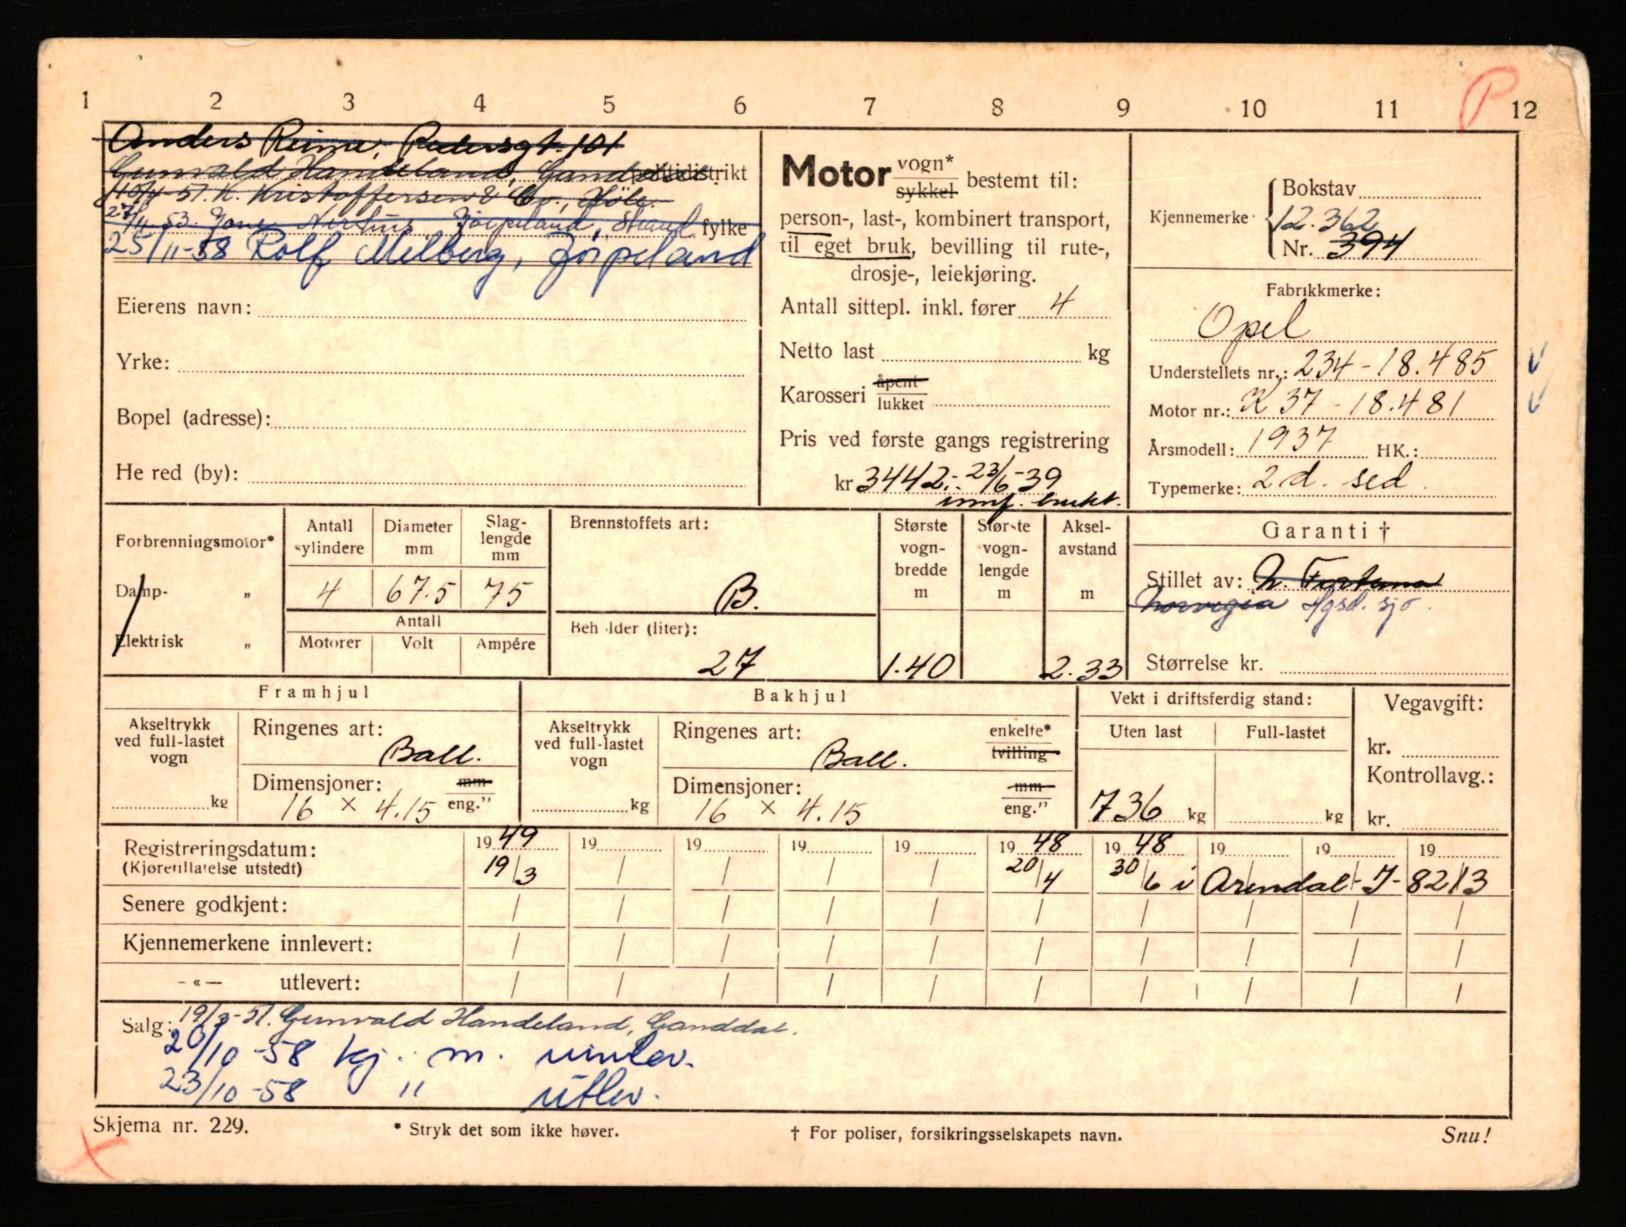 1 2 3 4 5 6 7 8 9 10 11 12
P
Anders Reime, Pedersgt. 101
Gunvald Handeland, Ganddal. politidistrikt
10/4-51. K. Kristoffersen & Co., Høle.
27/11-53. Jørpeland, Strand fylke
25/11-58 Rolf Melberg, Jørpeland
Eierens navn:
Yrke:
Bopel (adresse):
He red (by):
Motor vogn* sykkel bestemt til:
person-, last-, kombinert transport,
til eget bruk, bevilling til rute-,
drosje-, leiekjøring.
Antall sittepl. inkl. fører 4
Netto last kg
Karosseri åpent lukket
Pris ved første gangs registrering
kr 3442.- 23/6-39
innf. brukt.
Kjennemerke
Bokstav
12.362
Nr. 394
Fabrikkmerke:
Opel
Understellets nr.: 234-18.485
Motor nr.: K 37-18.481
Årsmodell: 1937 HK.:
Typemerke: 2 d. sed.
Forbrenningsmotor*
Damp- „
Elektrisk „
Antall sylindere Diameter mm Slaglengde mm
4 67.5 75
Antall
Motorer Volt Ampére
Brennstoffets art:
B.
Beh lder (liter):
27
Største vogn-bredde m
1.40
Største vogn-lengde m
Aksel-avstand m
2.33
Garanti †
Stillet av: N. Fortuna
Norvegia Agsd. sjø.
Størrelse kr.
Framhjul
Akseltrykk ved full-lastet vogn
kg
Ringenes art:
Ball.
Dimensjoner: mm
16 × 4.15 eng."
Bakhjul
Akseltrykk ved full-lastet vogn
kg
Ringenes art: enkelte*
Ball. tvilling
Dimensjoner: mm
16 × 4.15 eng."
Vekt i driftsferdig stand:
Uten last Full-lastet
736 kg kg
Vegavgift:
kr.
Kontrollavg.:
kr.
Registreringsdatum: 1949 19 19 19 19 1948 1948 19 19 19
(Kjøretillatelse utstedt) 19/3 / / / / 20/4 30/6 i Arendal-I-8213
Senere godkjent: / / / / / / / / / /
Kjennemerkene innlevert: / / / / / / / / / /
- « — utlevert: / / / / / / / / / /
Salg: 19/3-51. Gunvald Handeland, Ganddal.
20/10-58 kj. m. innlev.
23/10-58 " utlev.
Skjema nr. 229. * Stryk det som ikke høver. † For poliser, forsikringsselskapets navn. Snu!